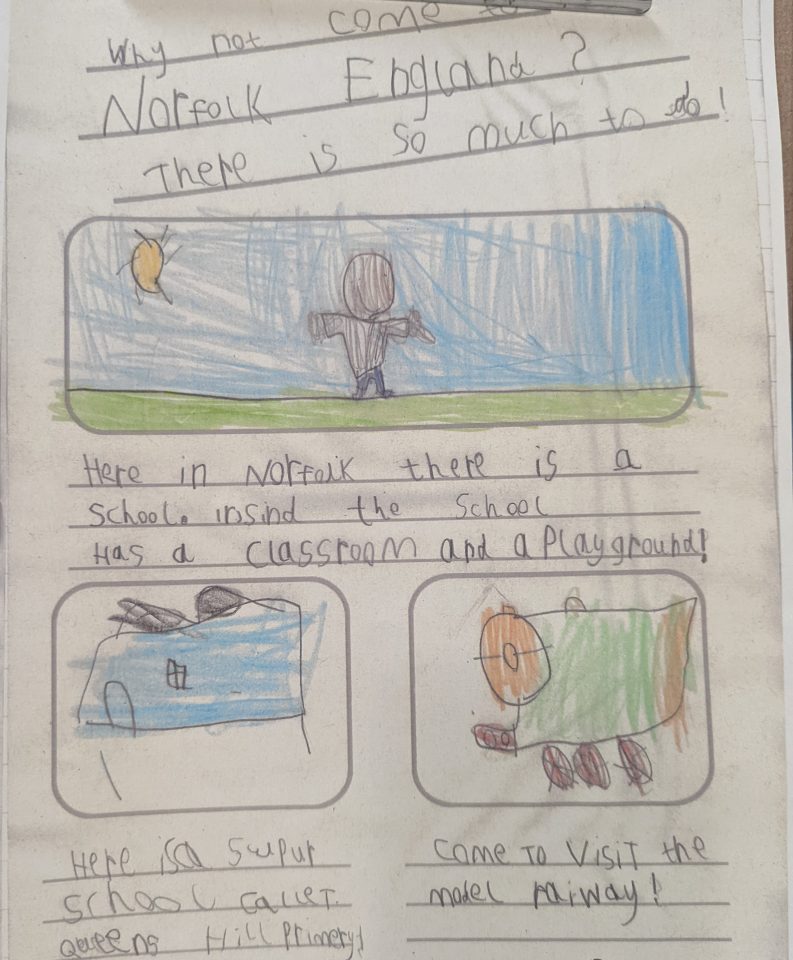 Why not come to
Norfolk England?
There is so much to do!
Here in Norfolk there is a
School. insind the School
Has a classroom and a Playground!
Here is a Supur
School callet
Queens Hill Primery!
Come To VisiT the
model raiway!